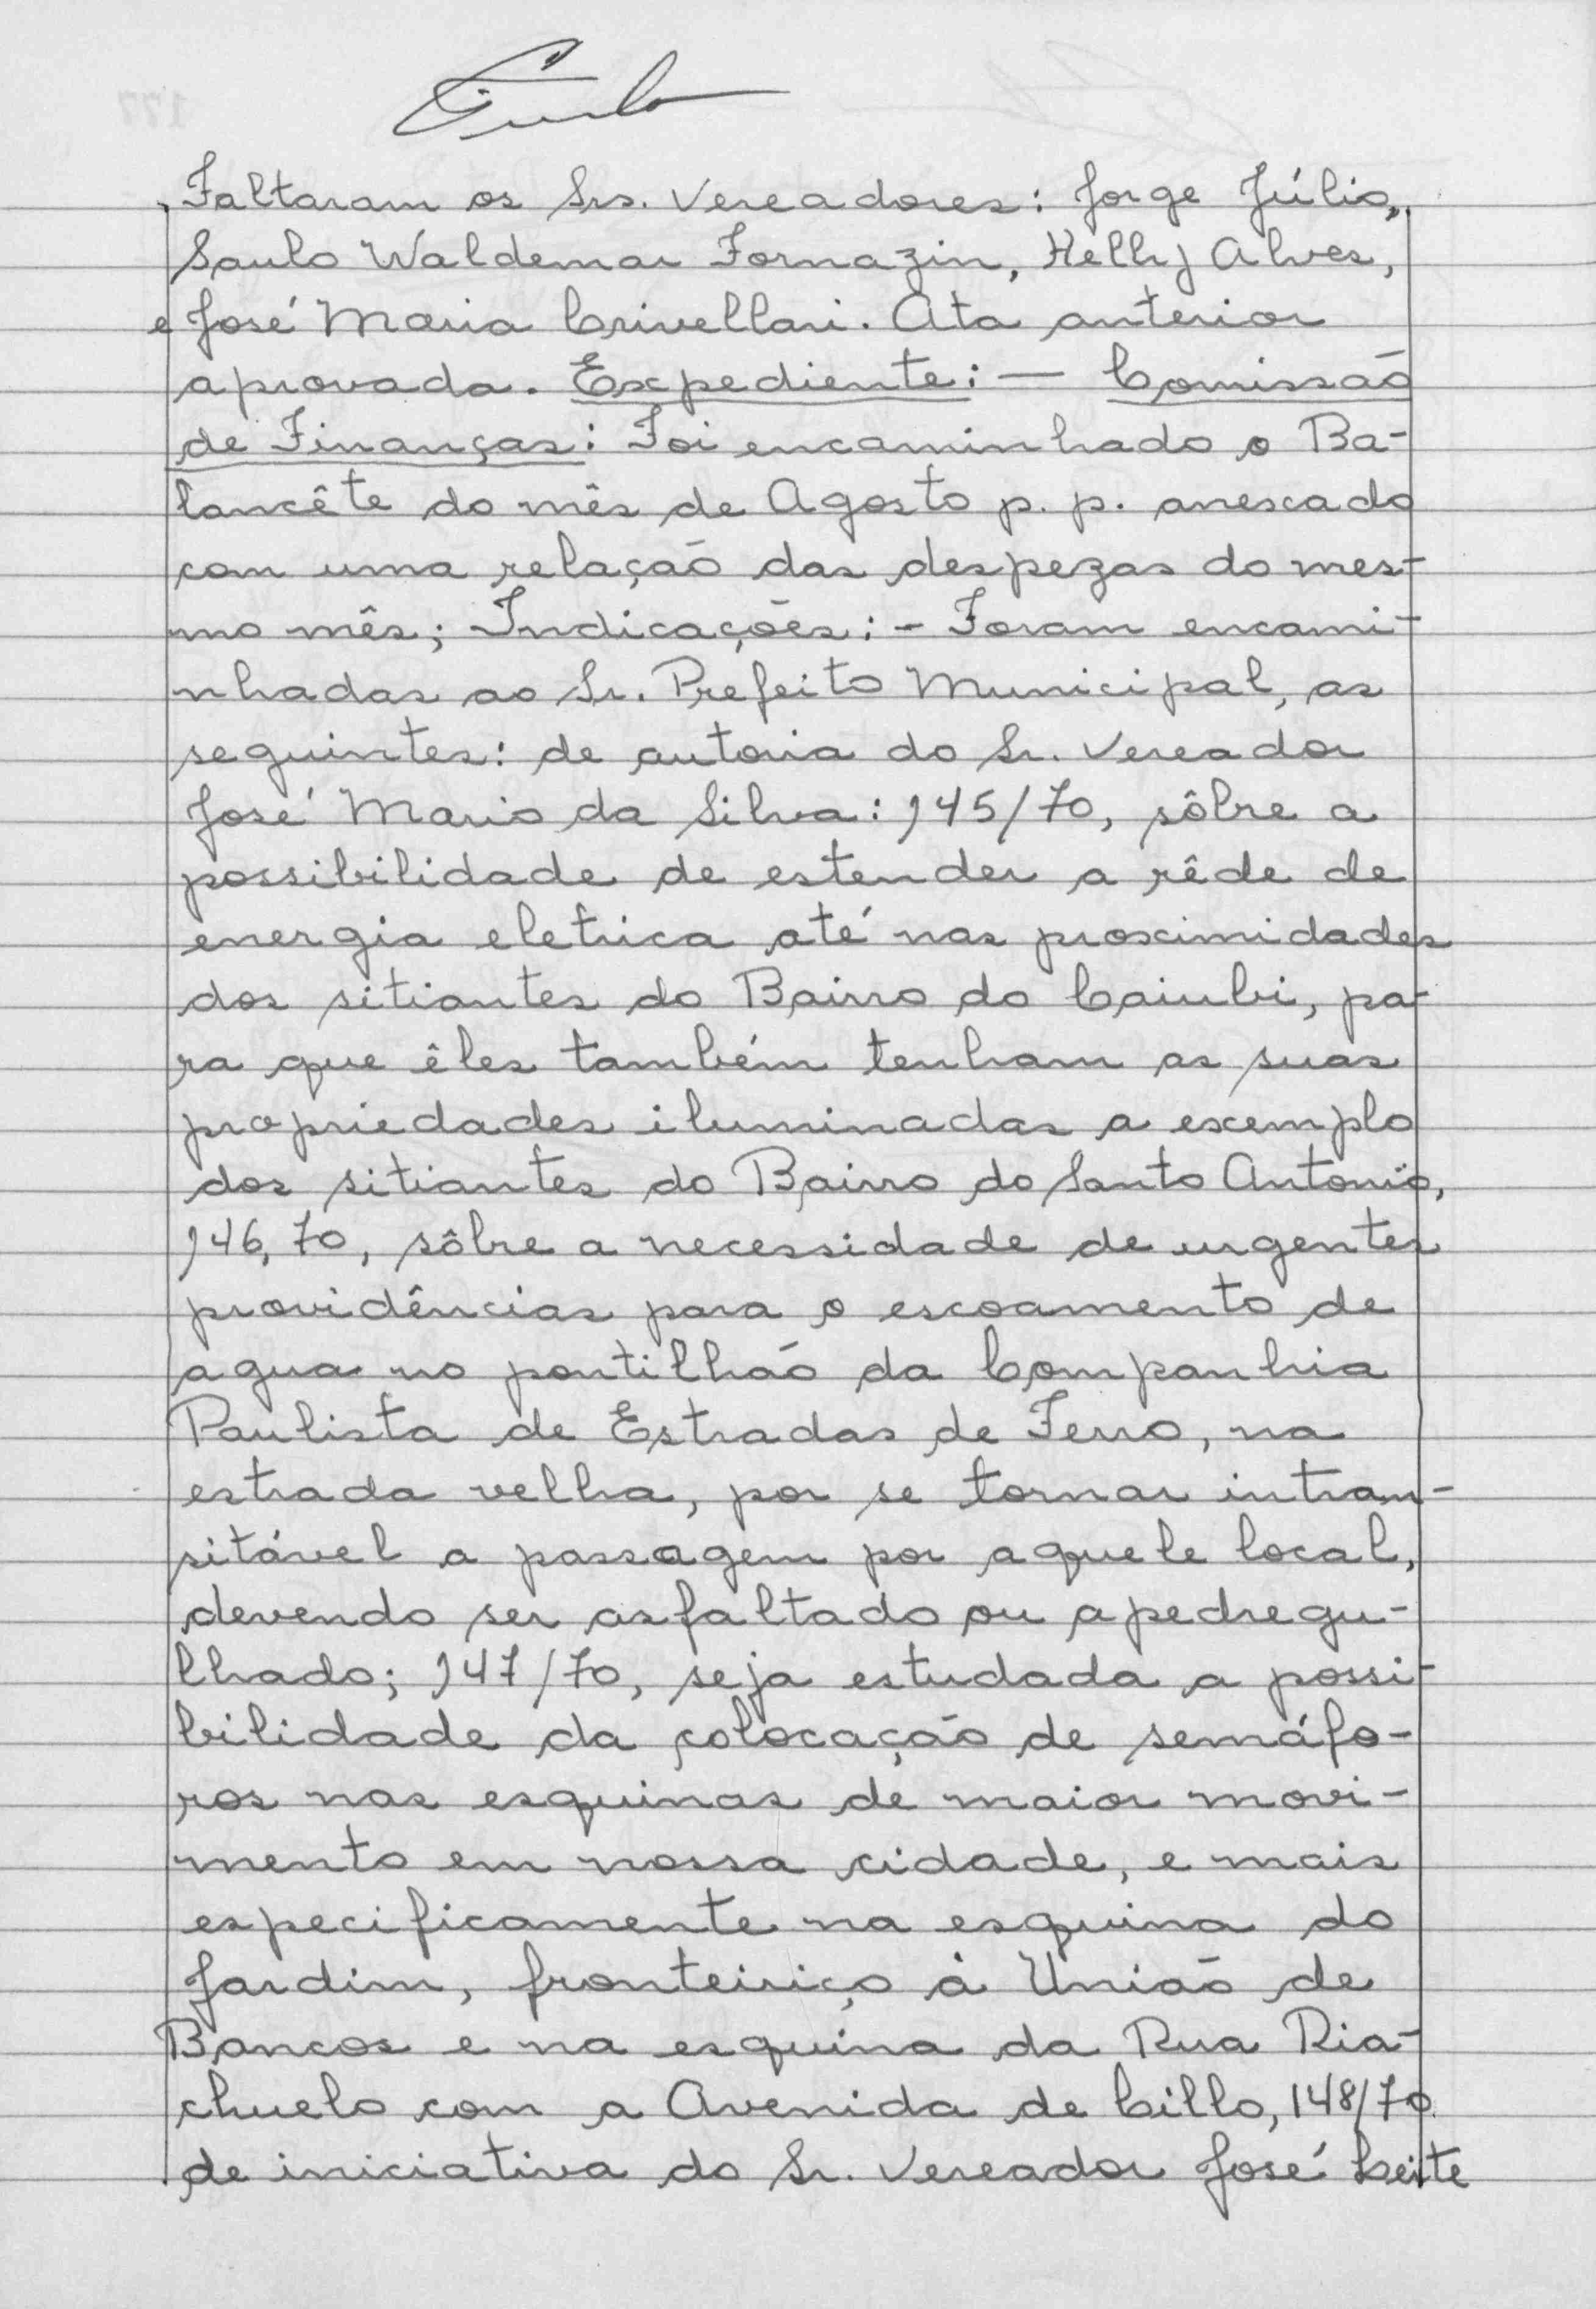 Faltaram os Srs. Vereadores: Jorge Júlio,
Saulo Waldemar Fornazin, Helly Alves,
e José Maria Crivellari. Ata anterior
aprovada. Expediente: — Comissão
de Finanças: Foi encaminhado o Ba-
lancête do mês de Agosto p. p. anexado
com uma relação das despezas do mes-
mo mês; Indicações: - Foram encami-
nhadas ao Sr. Prefeito Municipal, as
seguintes: de autoria do Sr. Vereador
José Mario da Silva: 145/70, sôbre a
possibilidade de estender a rêde de
energia eletrica até nas proximidades
dos sitiantes do Bairro do Caiubi, pa-
ra que êles também tenham as suas
propriedades iluminadas a exemplo
dos sitiantes do Bairro do Santo Antonio,
146,70, sôbre a necessidade de urgentes
providências para o escoamento de
agua no pontilhão da Companhia
Paulista de Estradas de Ferro, na
estrada velha, por se tornar intran-
sitável a passagem por aquele local,
devendo ser asfaltado ou apedregu-
lhado; 147/70, seja estudada a possi-
bilidade da colocação de semáfo-
ros nas esquinas de maior movi-
mento em nossa cidade, e mais
especificamente na esquina do
Jardim, fronteiriço à União de
Bancos e na esquina da Rua Ria-
chuelo com a Avenida de Cillo, 148/70
de iniciativa do Sr. Vereador José Leite